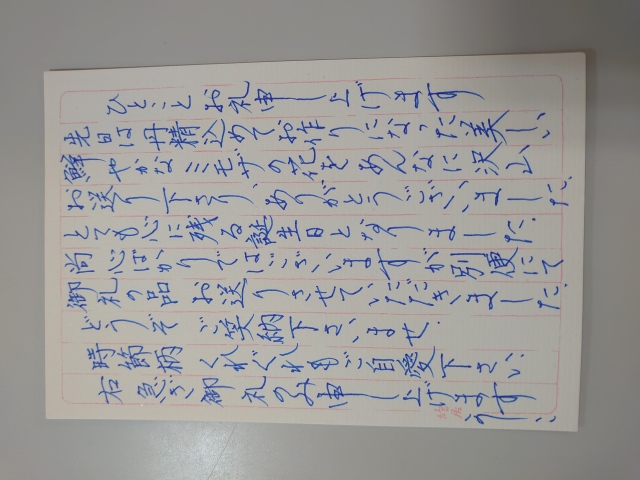 ひとことお礼申し上げます
先日は丹精込めてお作りになった美しい、
鮮やかなミモザの花をあんなに沢山、
お送り下さり、ありがとうございました。
とても心に残る誕生日となりました。
尚心ばかりではございますが別便にて
御礼の品お送りさせていただきました。
どうぞご笑納下さいませ.
時節柄くれぐれもご自愛下さい
右急ぎ御礼のみ申し上げます